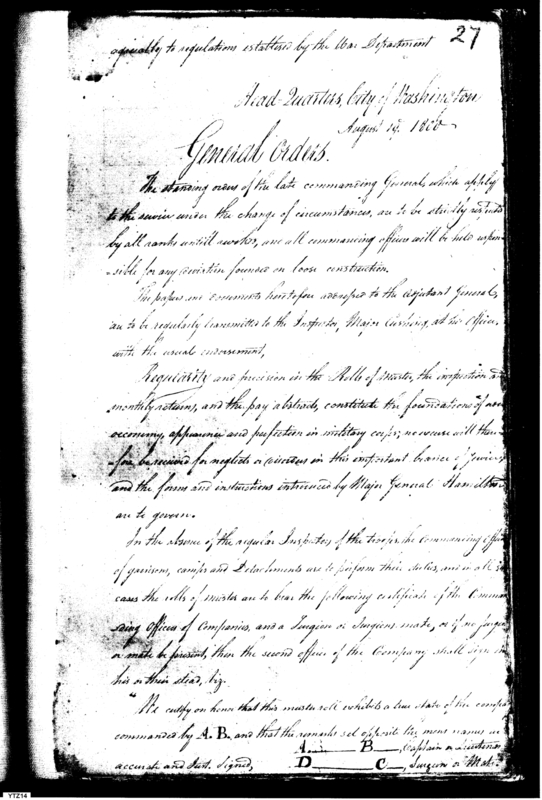 27
equality to regulations establised by the War Department
Head-Quarters, City of Washington
August 19. 1800
General Orders.
The standing orders of the late commanding Generals, which apply
to the service under the change of circumstances, are to be strictly
by all ranks untill revoked, and all commanding officers will be held respon-
-sible for any deviation founded on loose construction.
The papers and documents heretofore addressed to the Adjutant General,
are to be regularly transmitted to the Inspector, Major Cushing, at his Office,
with the usual endorsement,
Regularity and precision in the Rolls of Muster, the inspection and
monthly returns, and the pay abstracts, constitute the foundations of
oeconomy, appearance and perfection in military corps; no excuse will there-
-fore be received for neglects or disorders in this important branch of Service
and the forms and instructions introduced by Major General Hamilton
are to govern.
In the absence of the regular Inspectors of the troops the commanding officers
of garrisons, camps and Detachments are to perform their duties, and in all
cases the rolls of muster are to bear the following certificate of the Comman-
-ding Officers of Companies, and a Surgeon or Surgeons mate, or if no surgeon
or mate be present, then the second officer of the Company shall sign in
his or their stead, viz.
"We certify on honor that this muster roll exhibits a true state of the company
commanded by A. B. and that the remarks set opposite the mens names are
accurate and Just. Signed, A B, Captain or Lieutenant
D C, Surgeon or Mate
YTZ14